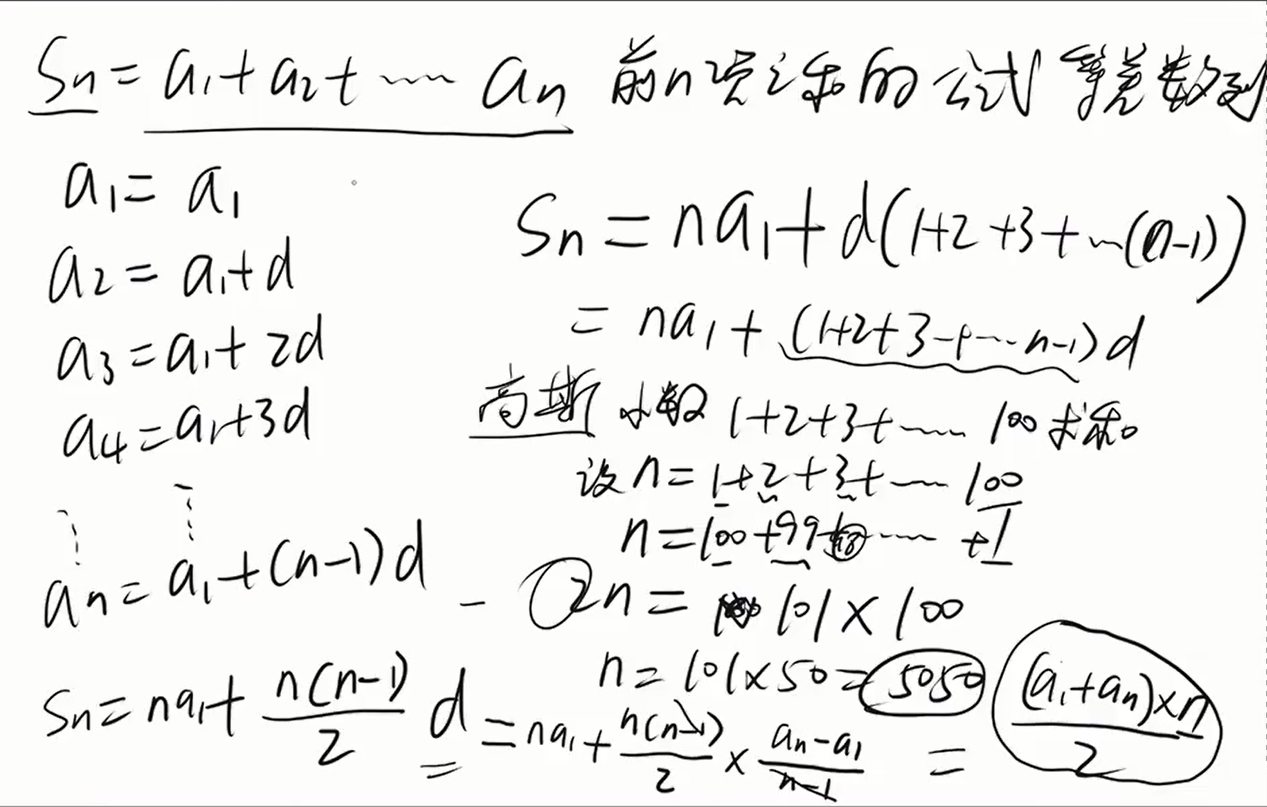 Sn = a1 + a2 + …… an 前n项之和的公式 等差数列
a1 = a1
a2 = a1 + d
a3 = a1 + 2d
a4 = a1 + 3d
an = a1 + (n-1)d
Sn = na1 + d(1+2+3+…(n-1))
= na1 + (1+2+3+……n-1)d
高斯 小数 1+2+3+…… 100 求和。
设 n = 1+2+3+…… 100
n = 100+99+98…… +1
2n = 101×100
n = 101×50 = 5050
Sn = na1 + n(n-1)/2 d = na1 + n(n-1)/2 × an-a1/n-1 = (a1+an)×n/2